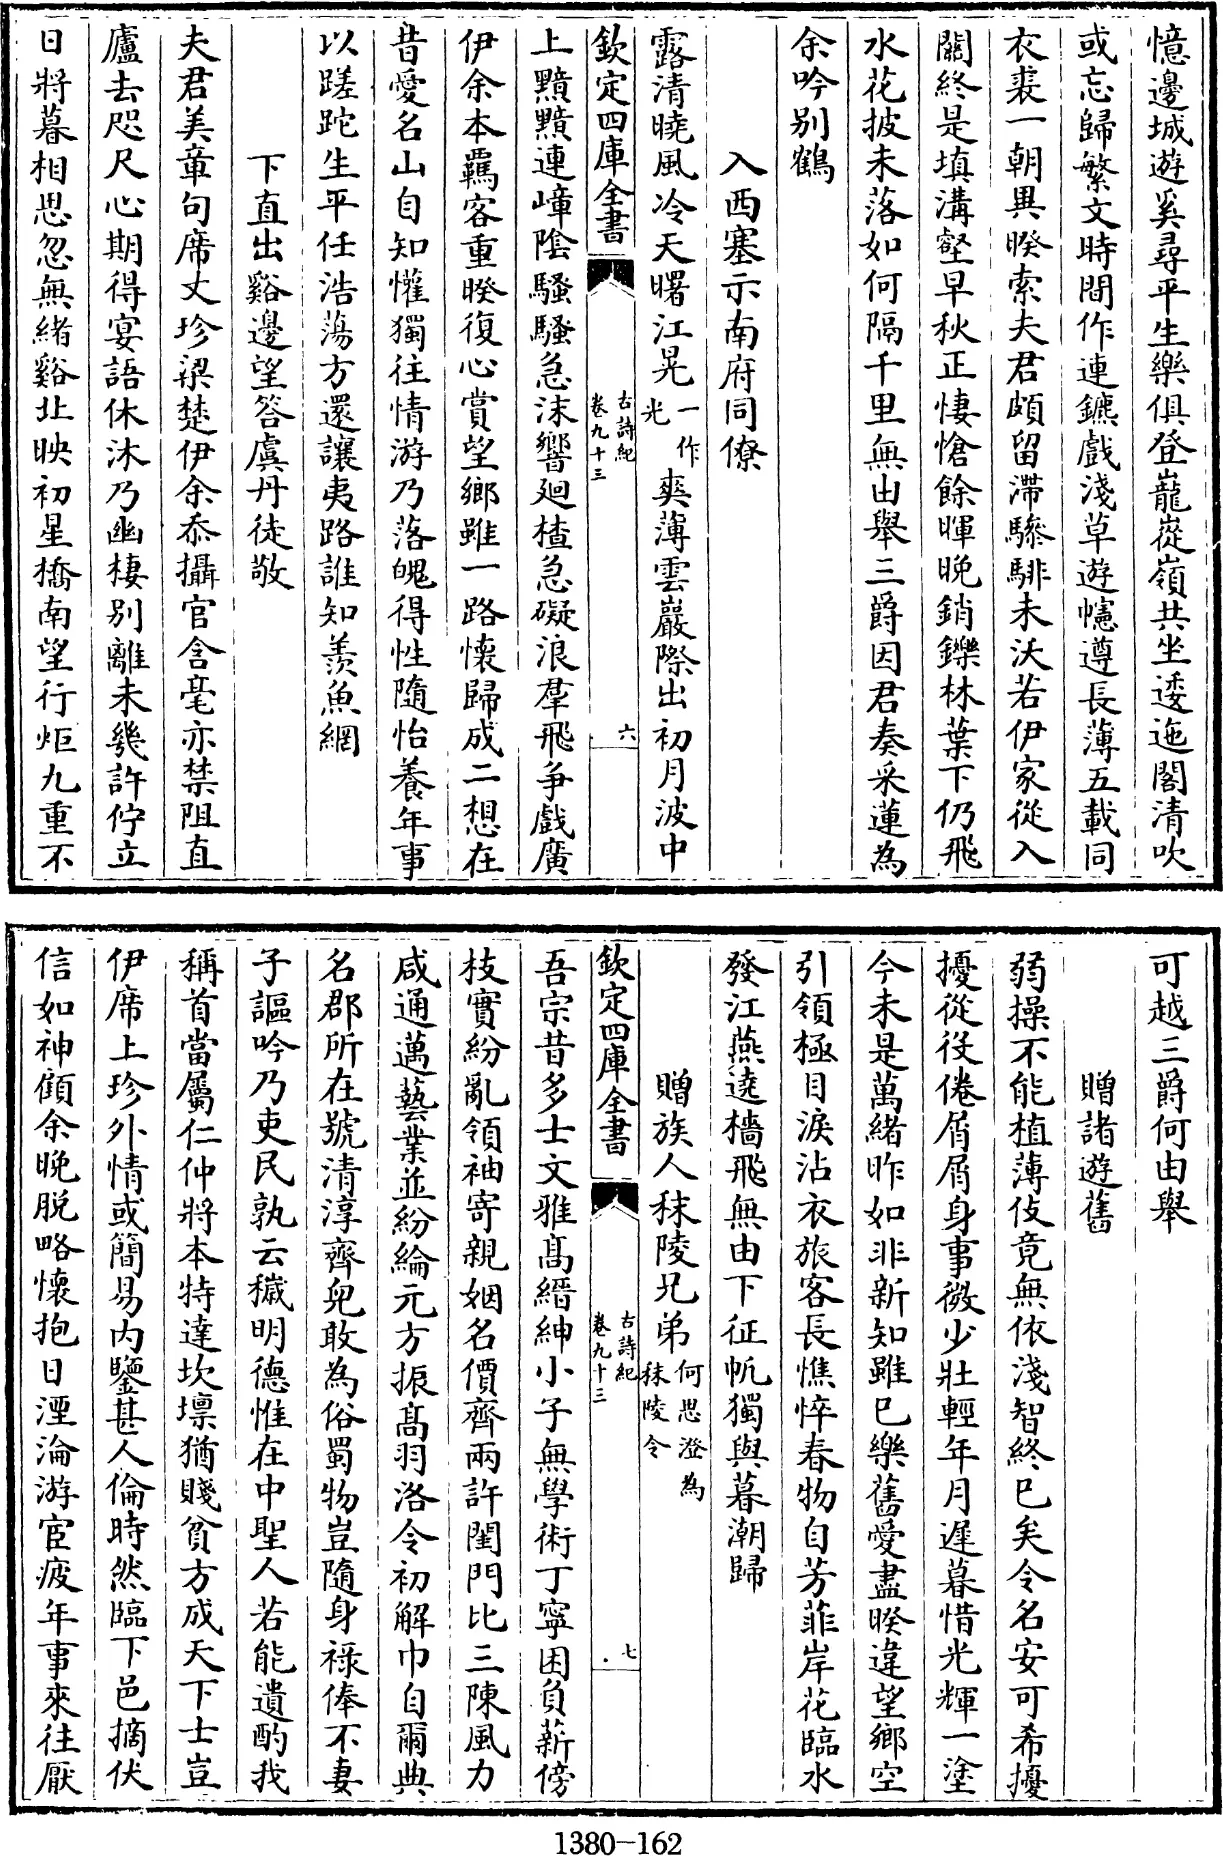 憶邊城遊奚尋平生樂俱登巃嵷嶺共坐逶迤閣清吹
或忘歸繁文時間作連鑣戲淺草遊幰遵長薄五載同
衣裘一朝異暌索夫君頗留滯驂騑未沃若伊家從入
關終是填溝壑早秋正悽愴餘暉晚銷鑠林葉下仍飛
水花披未落如何隔千里無由舉三爵因君奏采蓮為
余吟别鶴
入西塞示南府同僚
露清曉風冷天曙江晃一作光爽薄雲巖際出初月波中
欽定四庫全書
古詩紀
卷九十三
六
上黯黮連嶂陰騷騷急沫響廻楂急礙浪羣飛爭戲廣
伊余本羈客重暌復心賞望鄉雖一路懷歸成二想在
昔愛名山自知懽獨往情游乃落魄得性隨怡養年事
以蹉跎生平任浩蕩方還讓夷路誰知羨魚網
下直出谿邊望答虞丹徒敬
夫君美章句席丈珍梁楚伊余忝攝官含毫亦禁阻直
廬去咫尺心期得宴語休沐乃幽棲别離未幾許佇立
日將暮相思忽無緒谿北映初星橋南望行炬九重不
可越三爵何由舉
贈諸遊舊
弱操不能植薄伎竟無依淺智終已矣令名安可希擾
擾從役倦屑屑身事微少壯輕年月遲暮惜光輝一塗
今未是萬緒昨如非新知雖已樂舊愛盡暌違望鄉空
引領極目淚沾衣旅客長憔悴春物自芳菲岸花臨水
發江燕遶檣飛無由下征帆獨與暮潮歸
贈族人秣陵兄弟何思澄為秣陵令
欽定四庫全書
古詩紀
卷九十三
七
吾宗昔多士文雅髙縉紳小子無學術丁寧困負薪傍
枝實紛亂領袖寄親姻名價齊兩許閨門比三陳風力
咸通邁藝業並紛綸元方振髙羽洛令初解巾自爾典
名郡所在號清淳齊兒敢為俗蜀物豈隨身祿俸不妻
子謳吟乃吏民孰云穢明德惟在中聖人若能遺酌我
稱首當屬仁仲將本特達坎壈猶賤貧方成天下士豈
伊席上珍外情或簡易内鑒甚人倫時然臨下邑摘伏
信如神顧余晩脱略懷抱日湮淪游宦疲年事來往厭
1380-162